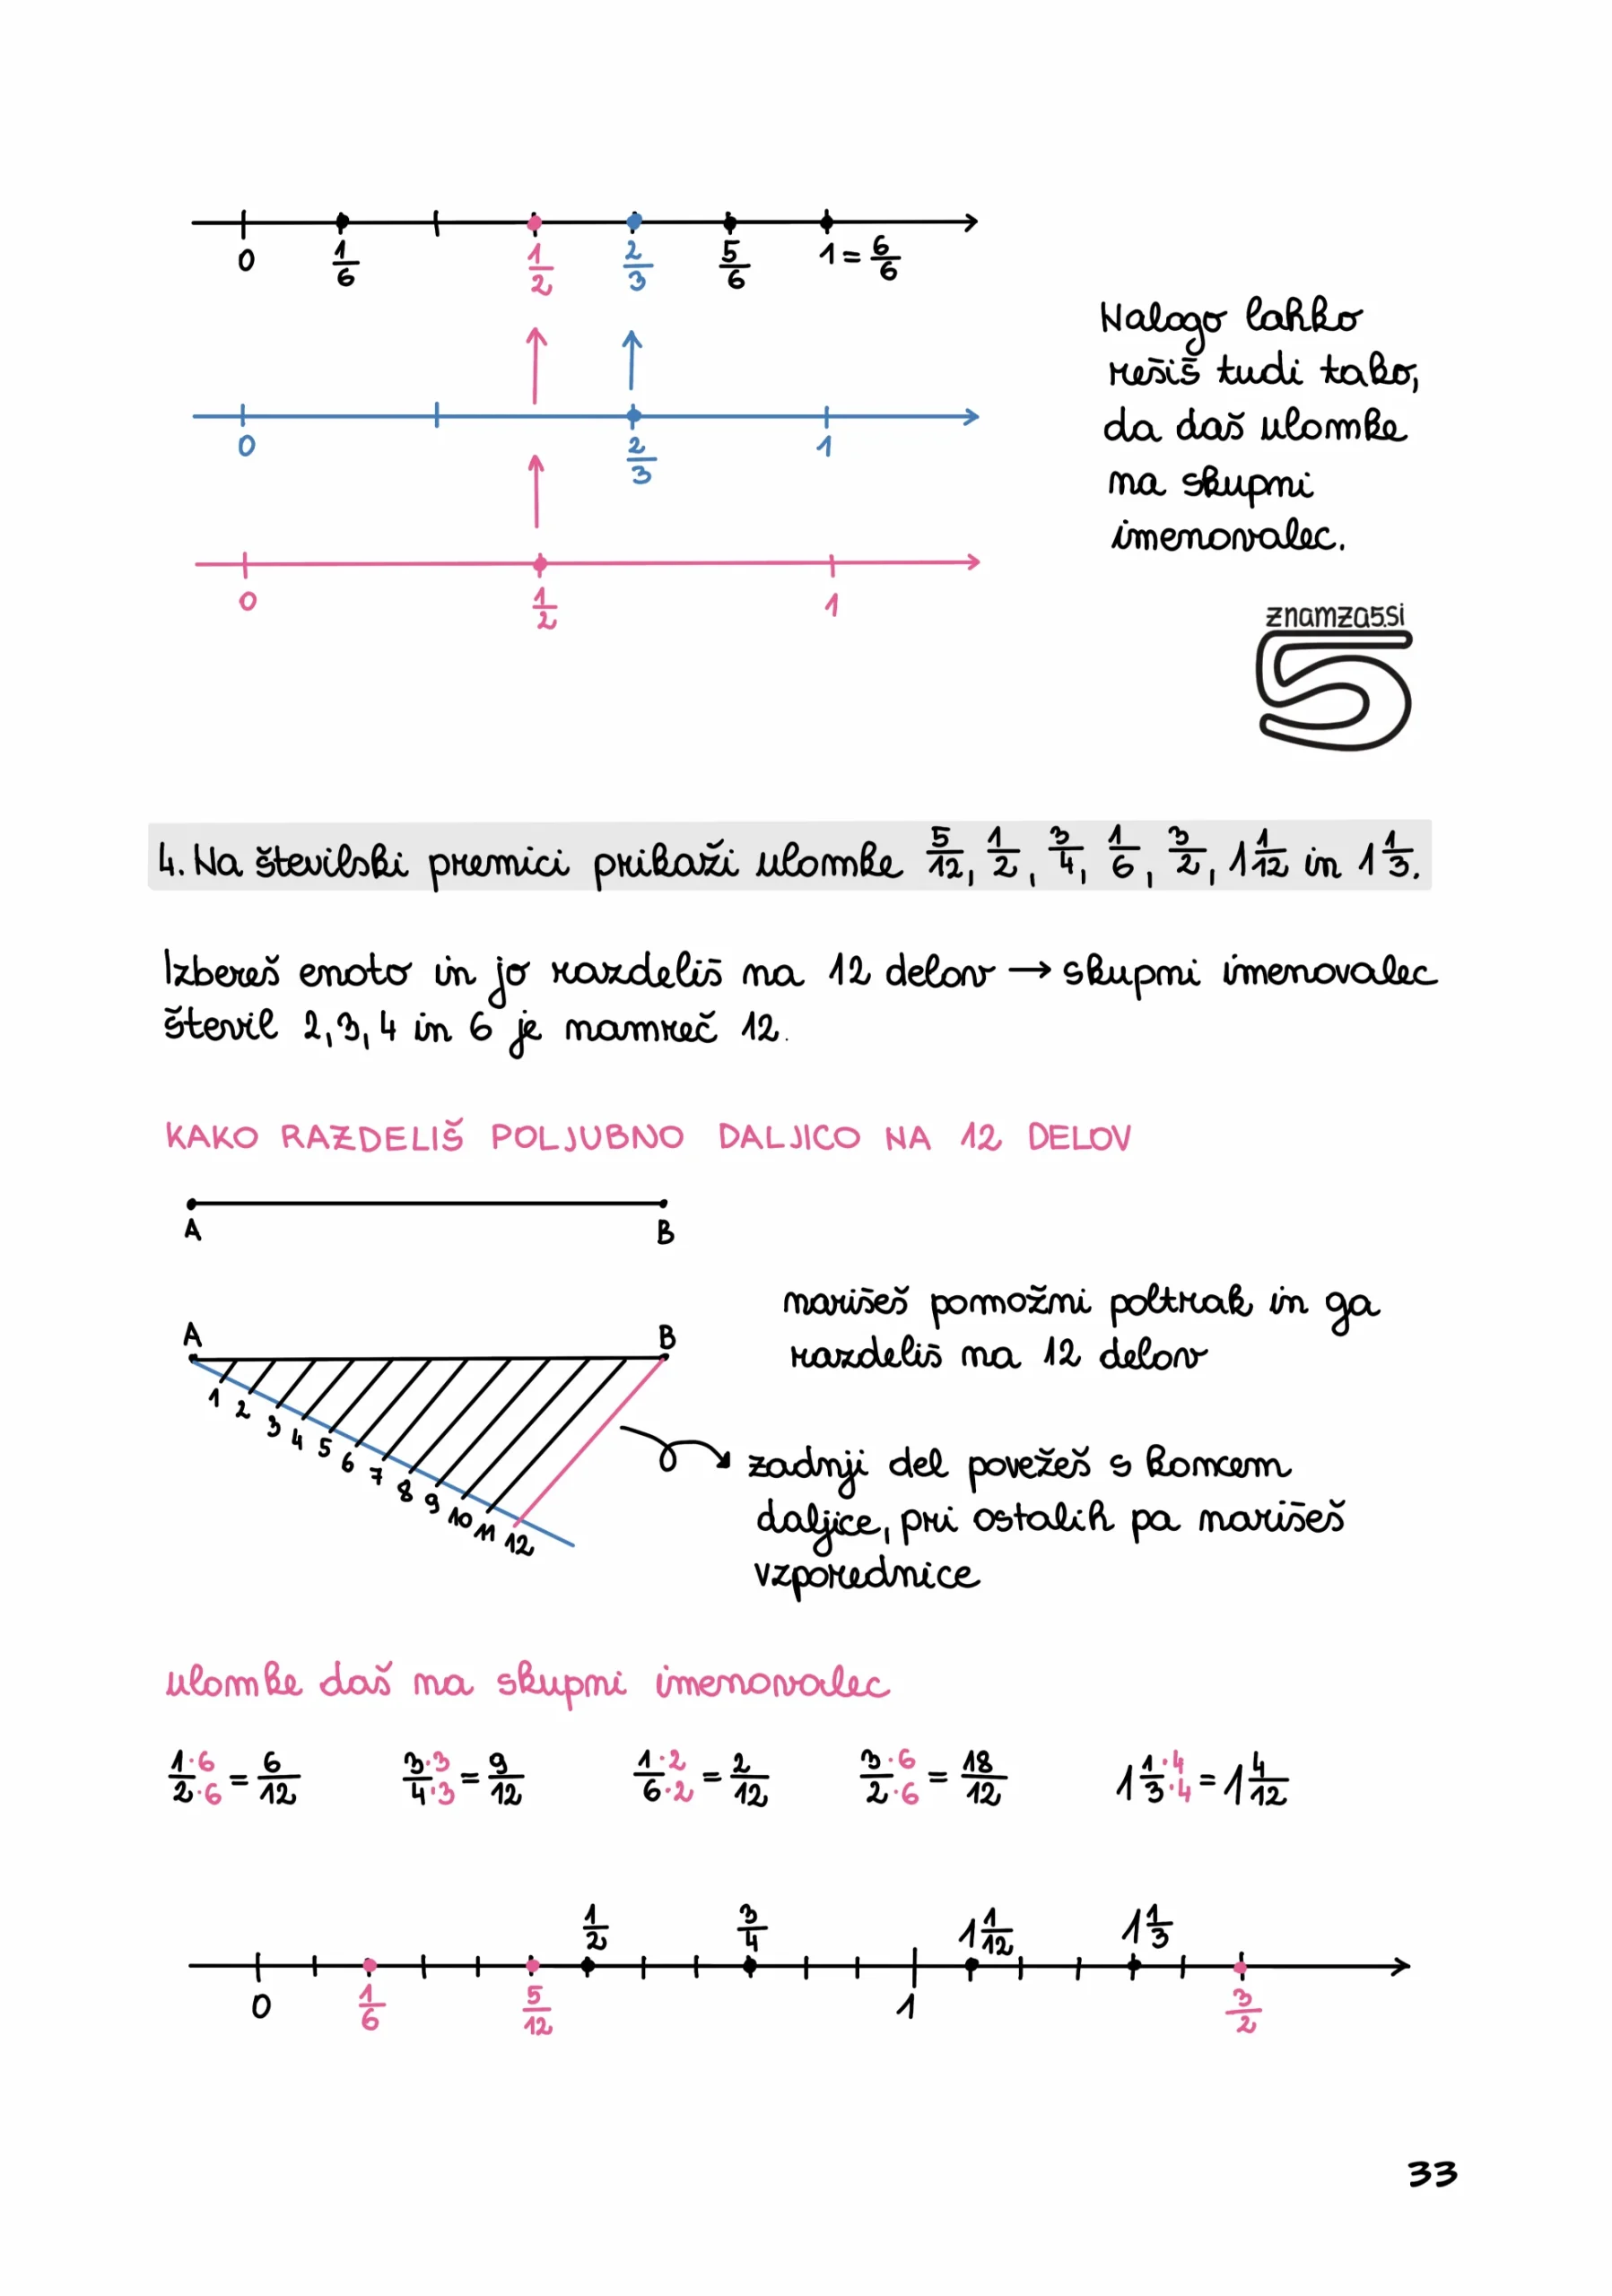 0 1/6 1/2 2/3 5/6 1=6/6
Nalogo lahko
rešiš tudi tako,
da daš ulomke
na skupni
imenovalec.
0 2/3 1
0 1/2 1
znamza5.si
5
4. Na številski premici prikaži ulomke 5/12, 1/2, 3/4, 1/6, 3/2, 1 1/12 in 1 1/3.
Izbereš enoto in jo razdeliš na 12 delov → skupni imenovalec
števil 2, 3, 4 in 6 je namreč 12.
KAKO RAZDELIŠ POLJUBNO DALJICO NA 12 DELOV
A B
A B
1 2 3 4 5 6 7 8 9 10 11 12
narišeš pomožni poltrak in ga
razdeliš na 12 delov
zadnji del povežeš s koncem
daljice, pri ostalih pa narišeš
vzporednice
ulomke daš na skupni imenovalec
1·6/2·6 = 6/12 3·3/4·3 = 9/12 1·2/6·2 = 2/12 3·6/2·6 = 18/12 1 1·4/3·4 = 1 4/12
1/2 3/4 1 1/12 1 1/3
0 1/6 5/12 1 3/2
33